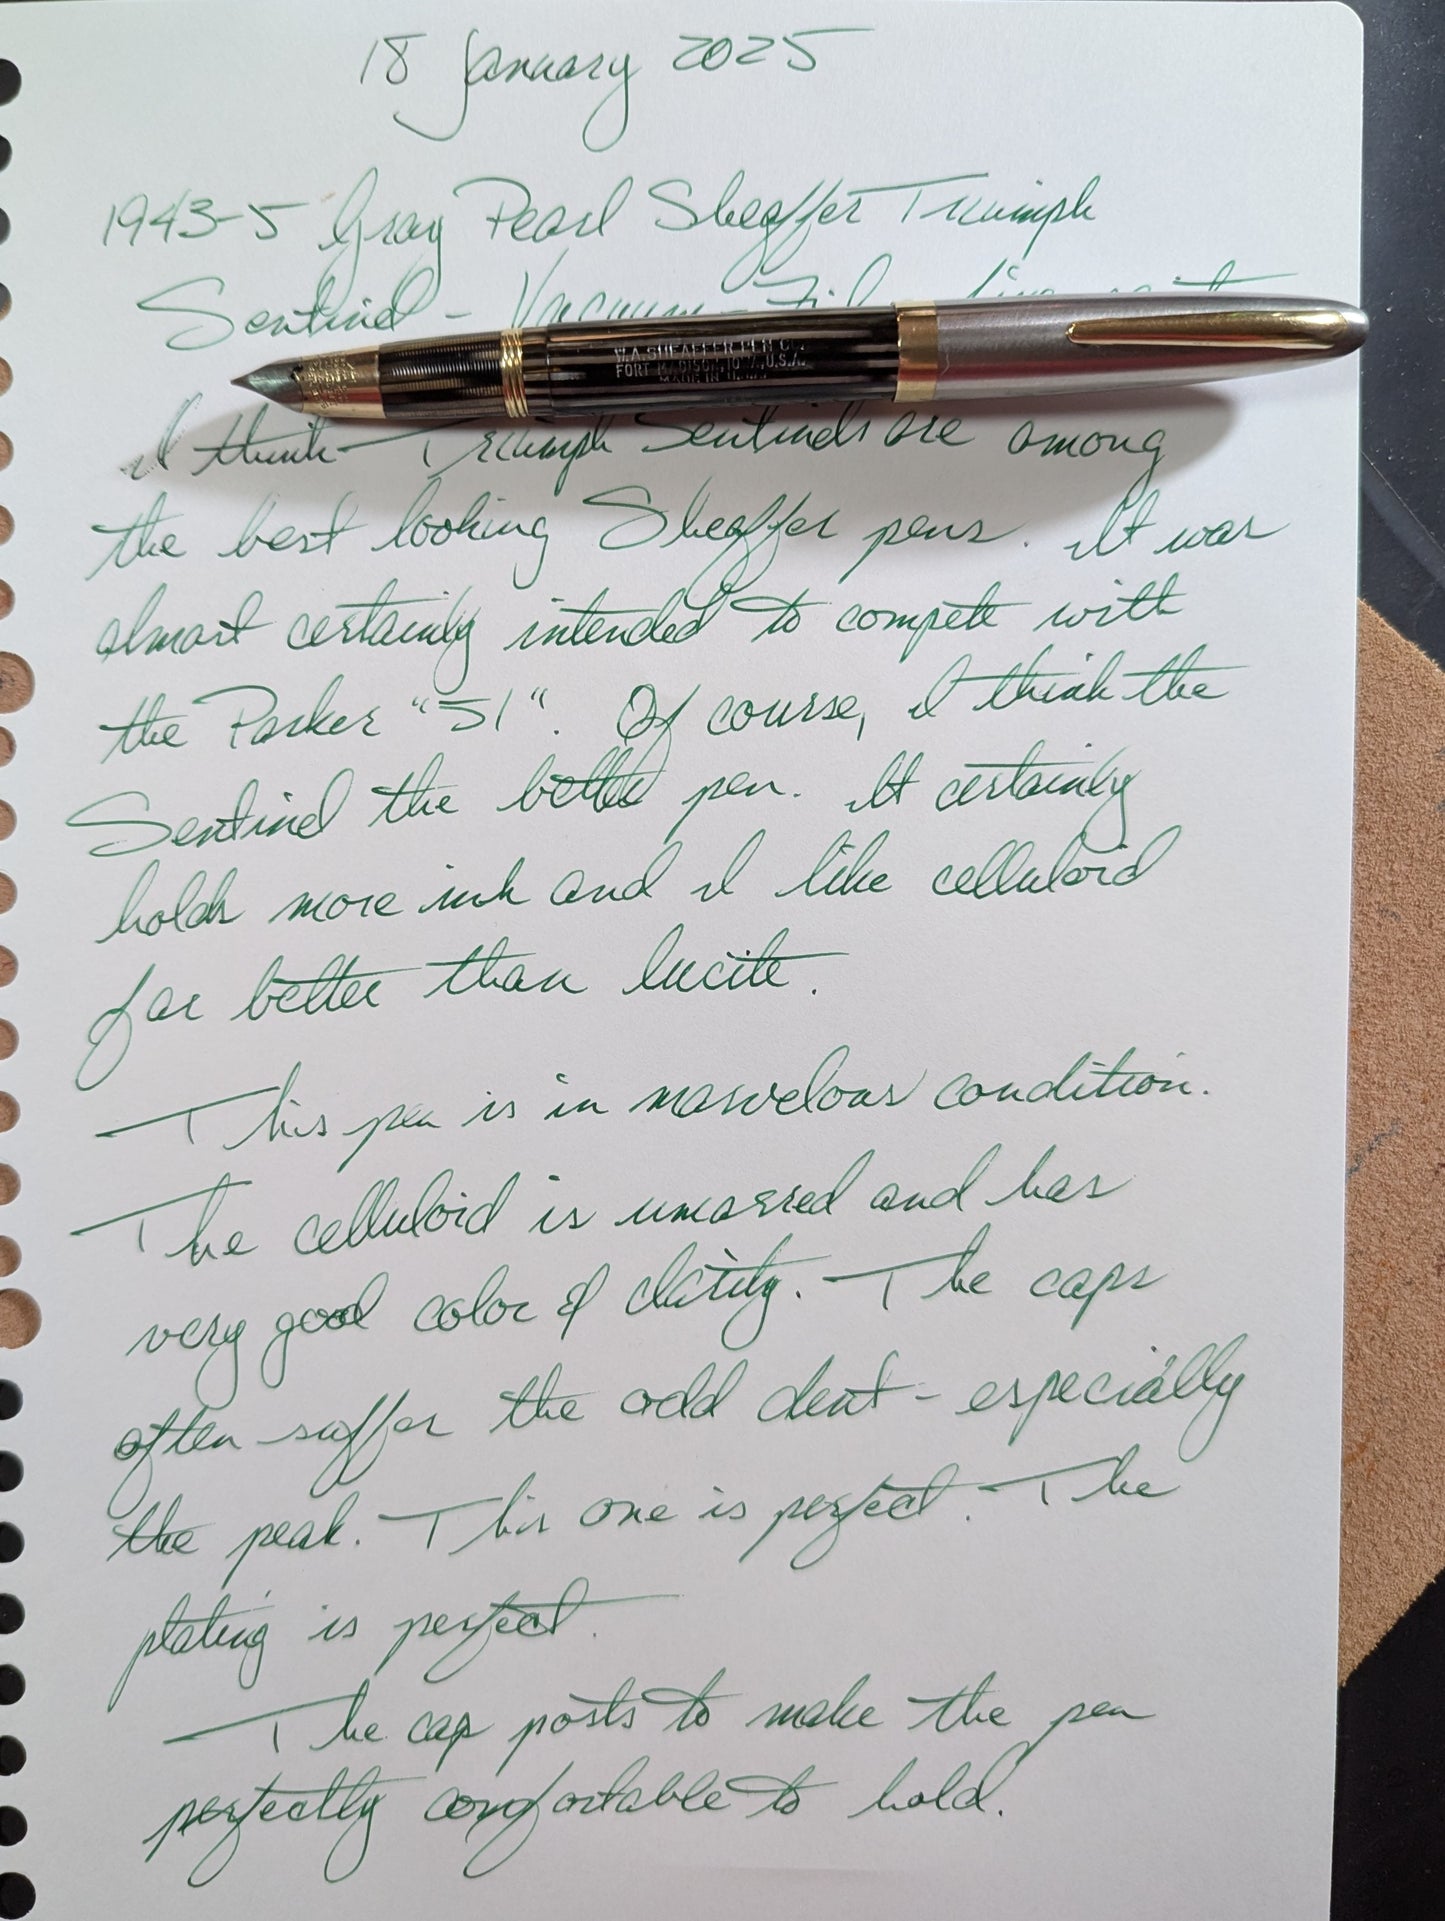 18 January 2025
1943-5 Gray Pearl Sheaffer Triumph
Sentinel - Vacuum-Fil
W.A. SHEAFFER PEN CO.
FORT MADISON, IOWA, U.S.A.
MADE IN U.S.A.
I think Triumph Sentinels are among
the best looking Sheaffer pens. It was
almost certainly intended to compete with
the Parker "51". Of course, I think the
Sentinel the better pen. It certainly
holds more ink and I like celluloid
far better than lucite.
This pen is in marvelous condition.
The celluloid is unmarred and has
very good color & clarity. The caps
often suffer the odd dent - especially
the peak. This one is perfect. The
plating is perfect.
The cap posts to make the pen
perfectly comfortable to hold.